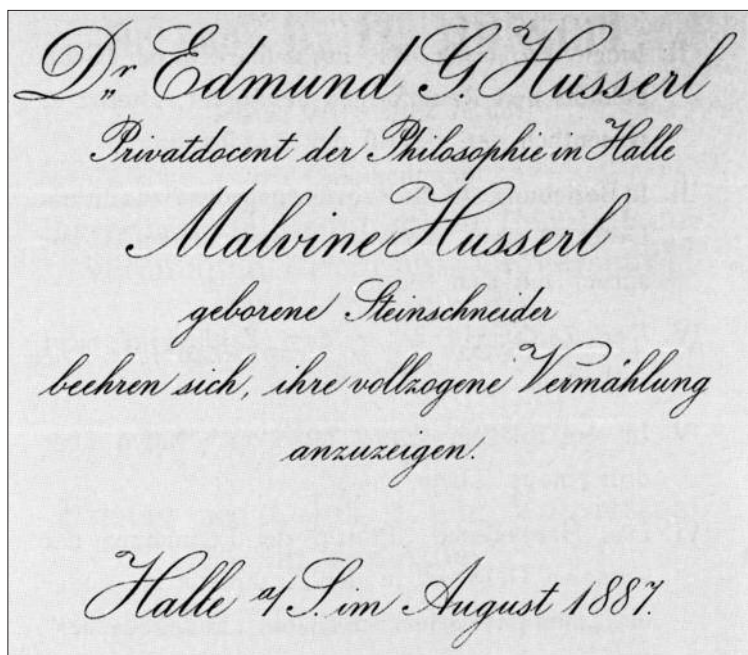 Dr. Edmund G. Husserl
Privatdocent der Philosophie in Halle
Malvine Husserl
geborene Steinschneider
beehren sich, ihre vollzogene Vermählung
anzuzeigen.
Halle a/S. im August 1887.